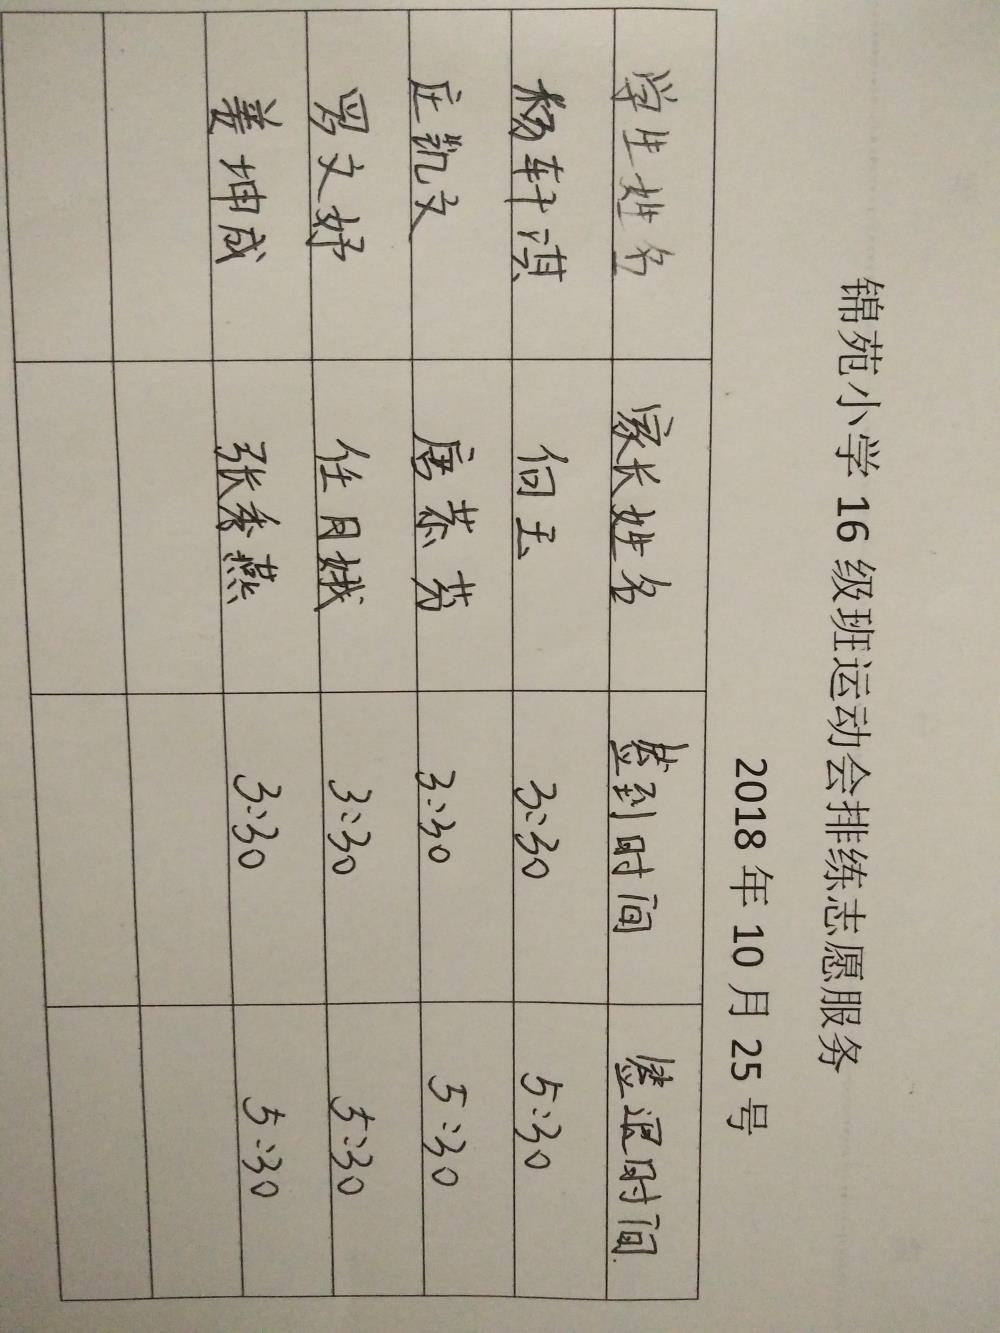 锦苑小学 16 级班运动会排练志愿服务
2018 年 10 月 25 号
学生姓名 家长姓名 签到时间 签退时间
杨轩淇 何玉 3:30 5:30
庄凯文 唐恭芬 3:30 5:30
罗文妤 任月娥 3:30 5:30
姜坤成 张秀燕 3:30 5:30